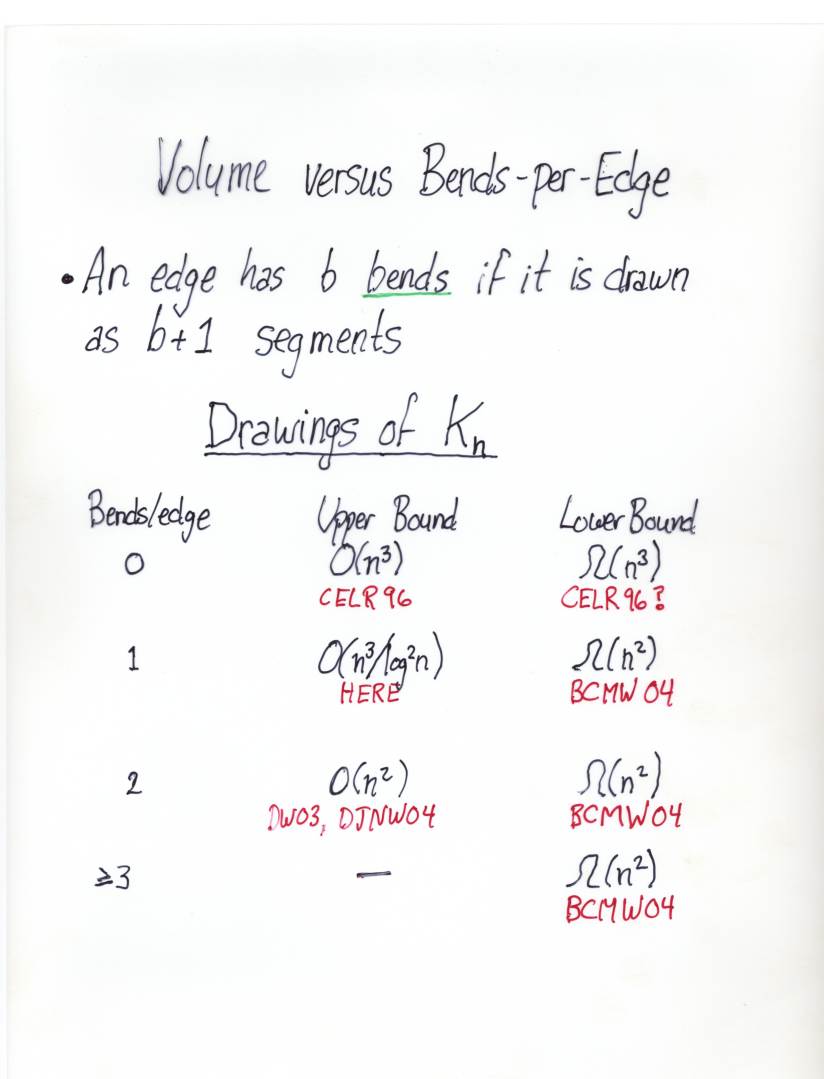 Volume versus Bends-per-Edge
• An edge has b bends if it is drawn
as b+1 segments
Drawings of Kₙ
Bends/edge Upper Bound Lower Bound
0 O(n³) Ω(n³)
CELR96 CELR96?
1 O(n³/log²n) Ω(n²)
HERE BCMW04
2 O(n²) Ω(n²)
DW03, DJNW04 BCMW04
≥3 — Ω(n²)
BCMW04